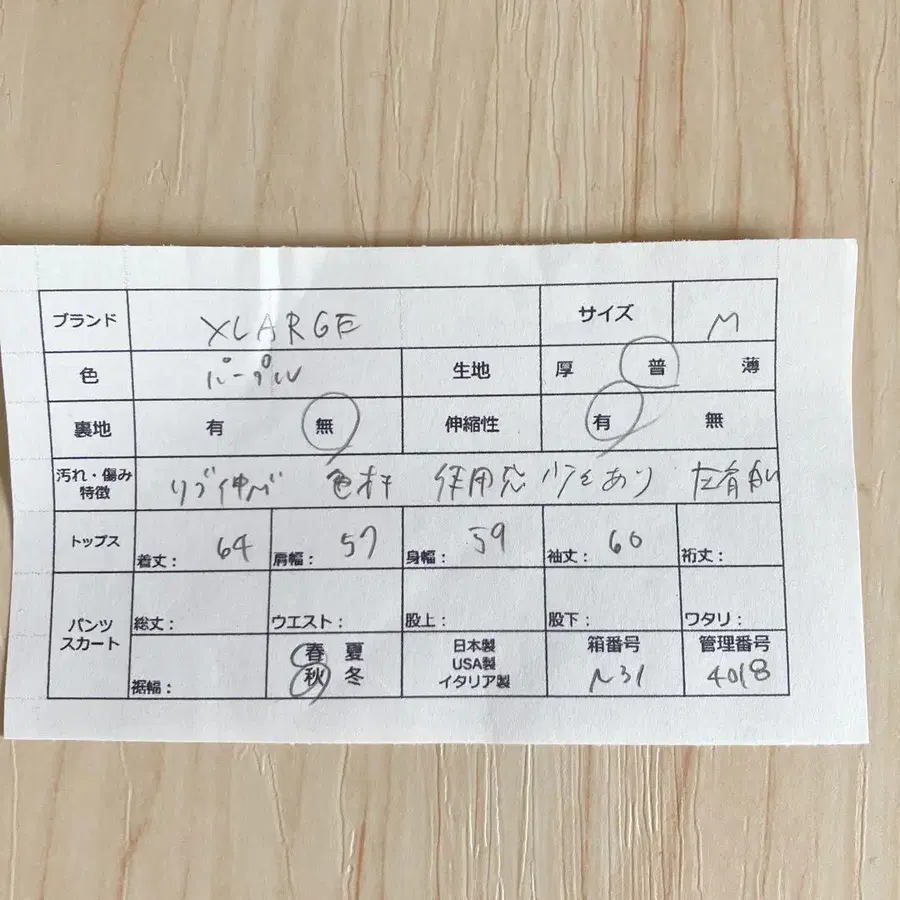 ブランド XLARGE サイズ M
色 パープル 生地 厚 普 薄
裏地 有 無 伸縮性 有 無
汚れ・傷み
特徴 リブ伸び 色 使用感 少々あり
トップス 着丈: 64 肩幅: 57 身幅: 59 袖丈: 60 裄丈:
パンツ
スカート
総丈: ウエスト: 股上: 股下: ワタリ:
裾幅:
春 夏
秋 冬
日本製
USA製
イタリア製
箱番号
N31
管理番号
4018